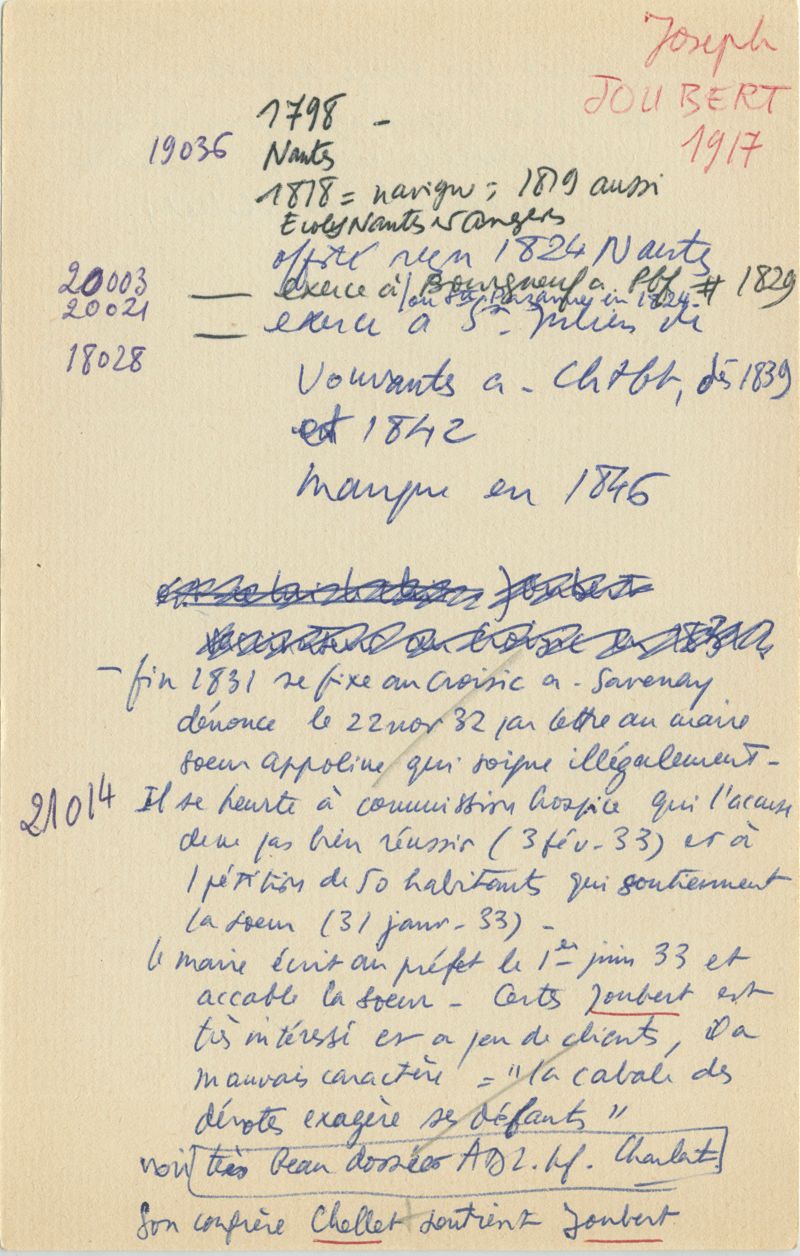 Joseph
JOUBERT
1917
1798 -
19036 Nantes
1818 = navigue ; 1819 aussi
Ecoles Nantes et Angers
offité reçu 1824 Nantes
20003 — exerce à Bourgneuf a. Pbf # 1829
20021 / ou Ste Pazanne en 1824.
— exerce à St. Julien de
18028
Vouvantes a - Chtbt, dès 1839
et 1842
manque en 1846
Joubert
- fin 1831 se fixe au Croisic a - Savenay
dénonce le 22 nov 32 par lettre au maire
soeur Appoline qui soigne illégalement -
21014 Il se heurte à commission hospice qui l'accuse
de ne pas bien réussir (3 fév. 33) et à
1 pétition de 50 habitants qui soutiennent
la soeur (31 janv. 33) -
le maire écrit au préfet le 1er juin 33 et
accable la soeur - Certes Joubert est
très intéressé et a peu de clients, il a
mauvais caractère = "la cabale des
dévotes exagère ses défauts"
voir très beau dossier AD L. Inf. Charlat.
Son confrère Chellet soutient Joubert